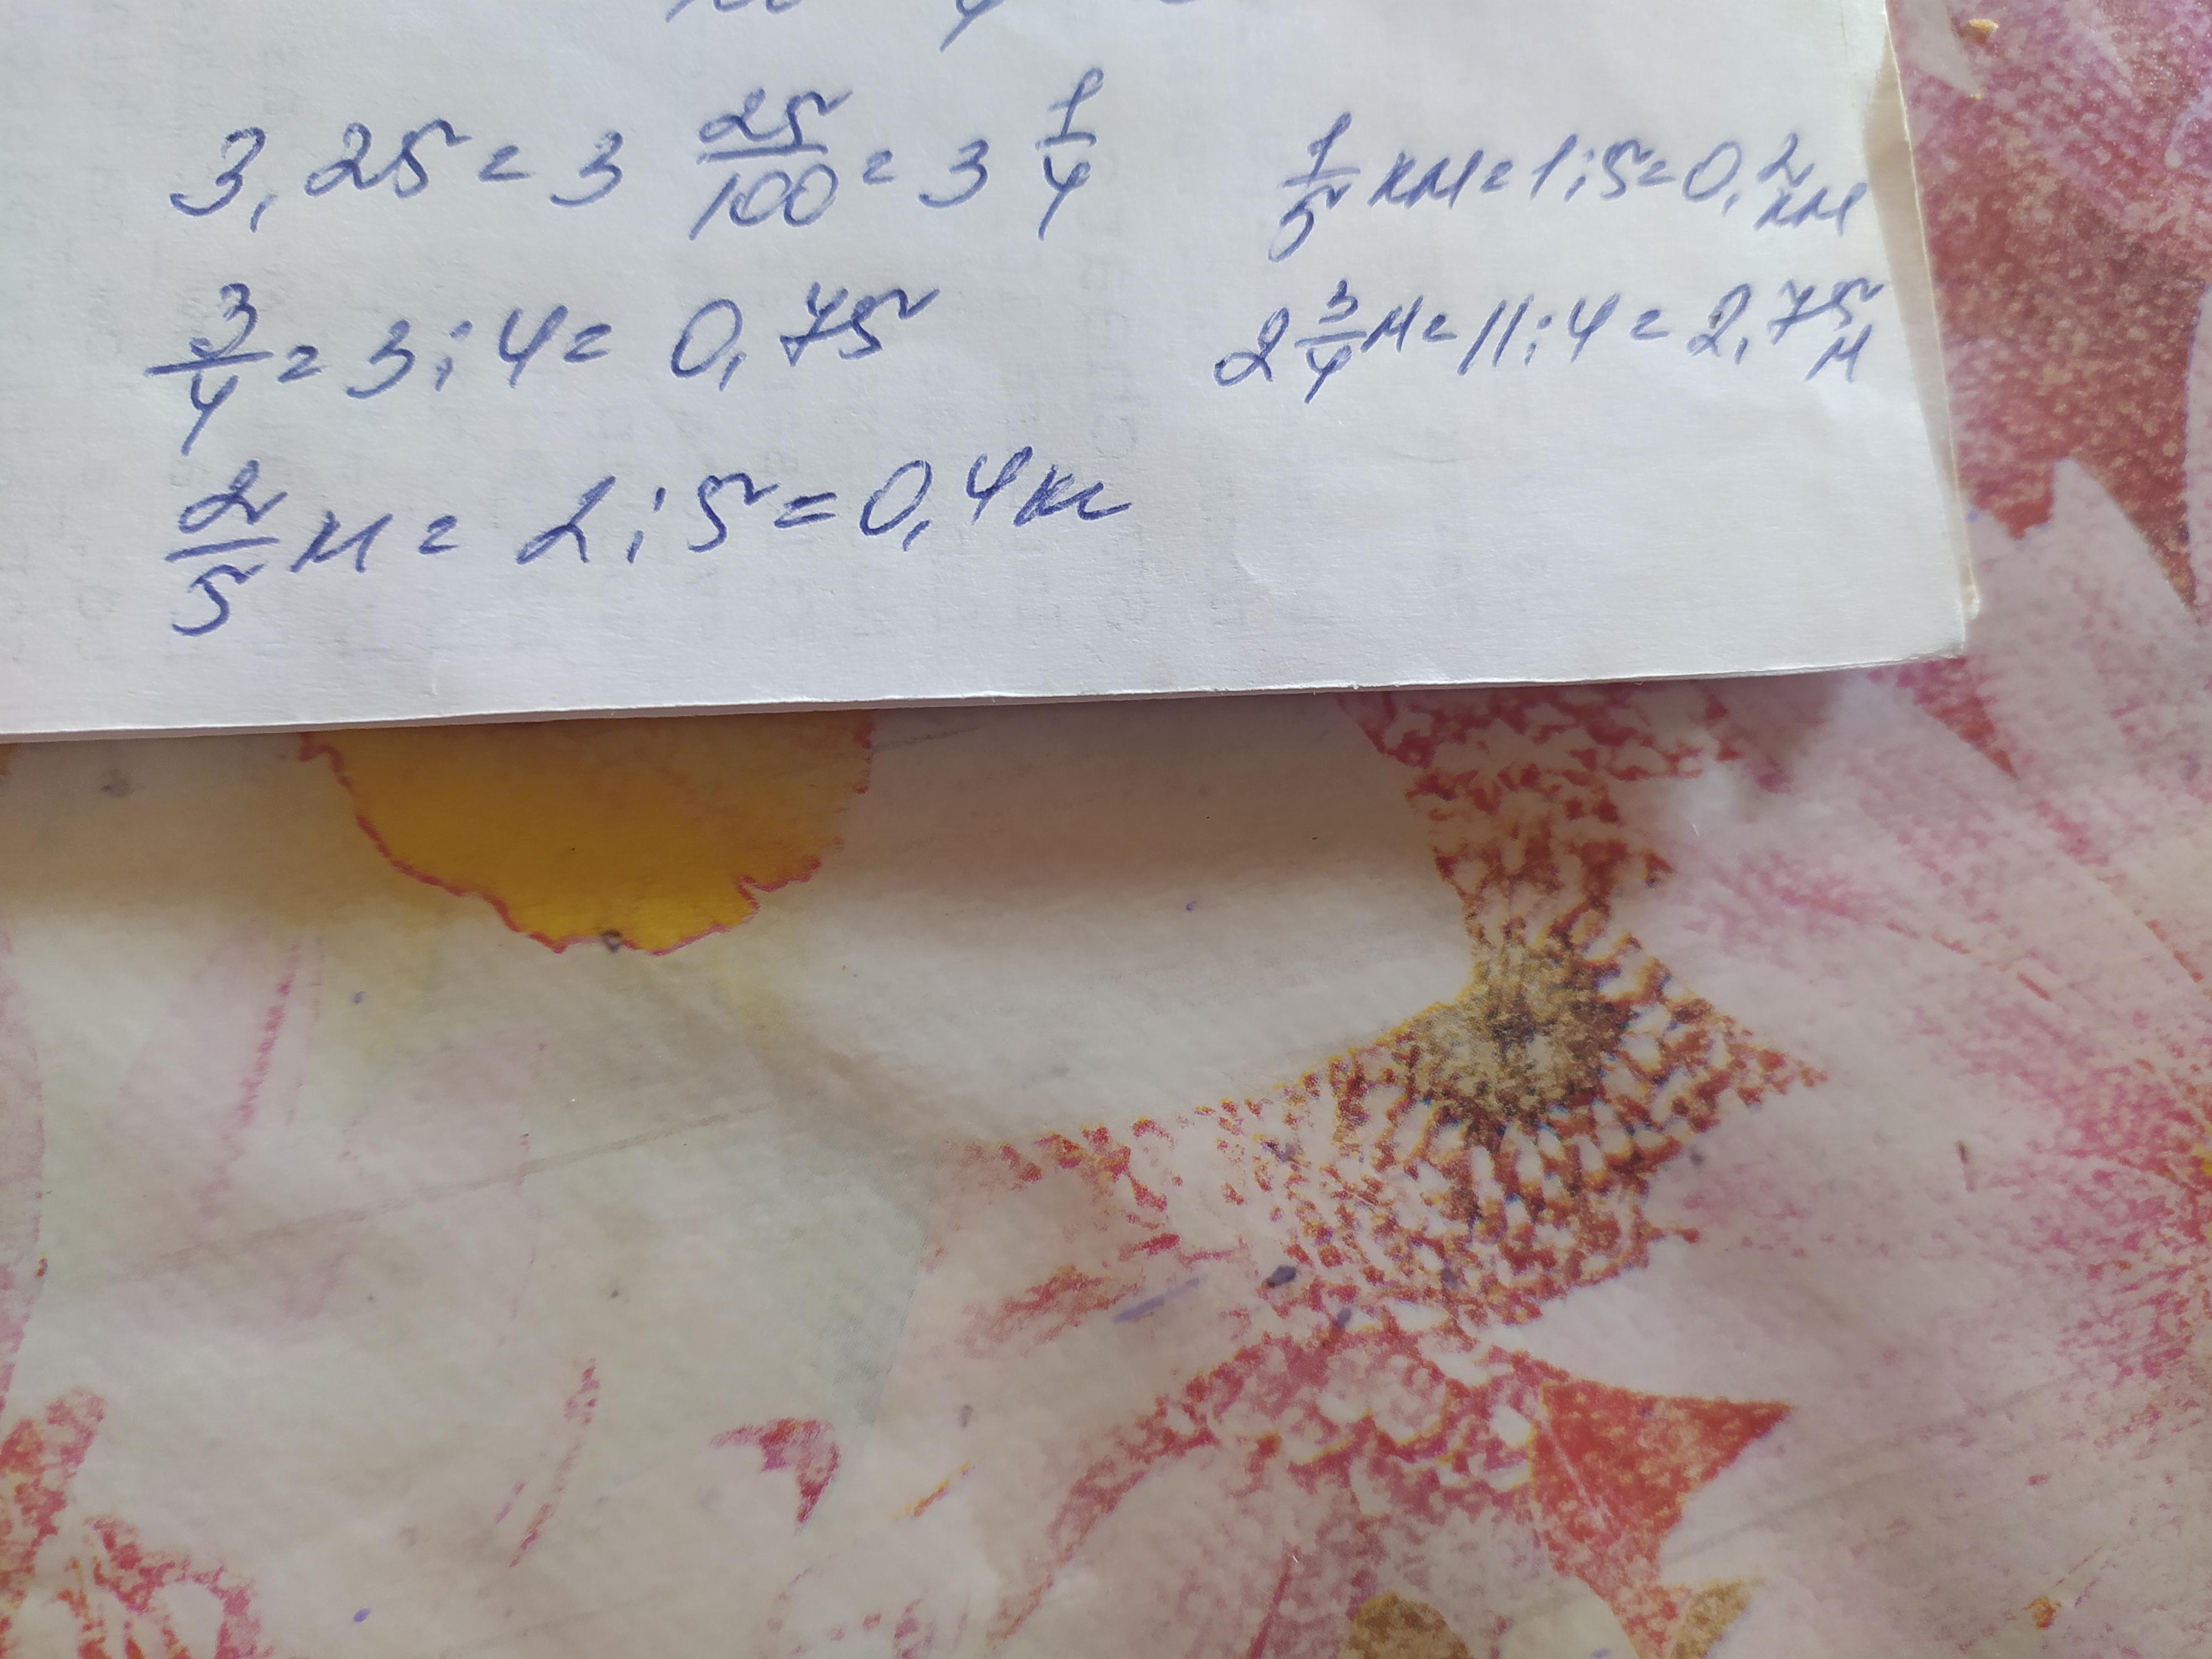 3,25 = 3 25/100 = 3 1/4
3/4 = 3 : 4 = 0,75
2/5 м = 2 : 5 = 0,4 м
1/5 км = 1 : 5 = 0,2 км
2 3/4 м = 11 : 4 = 2,75 м